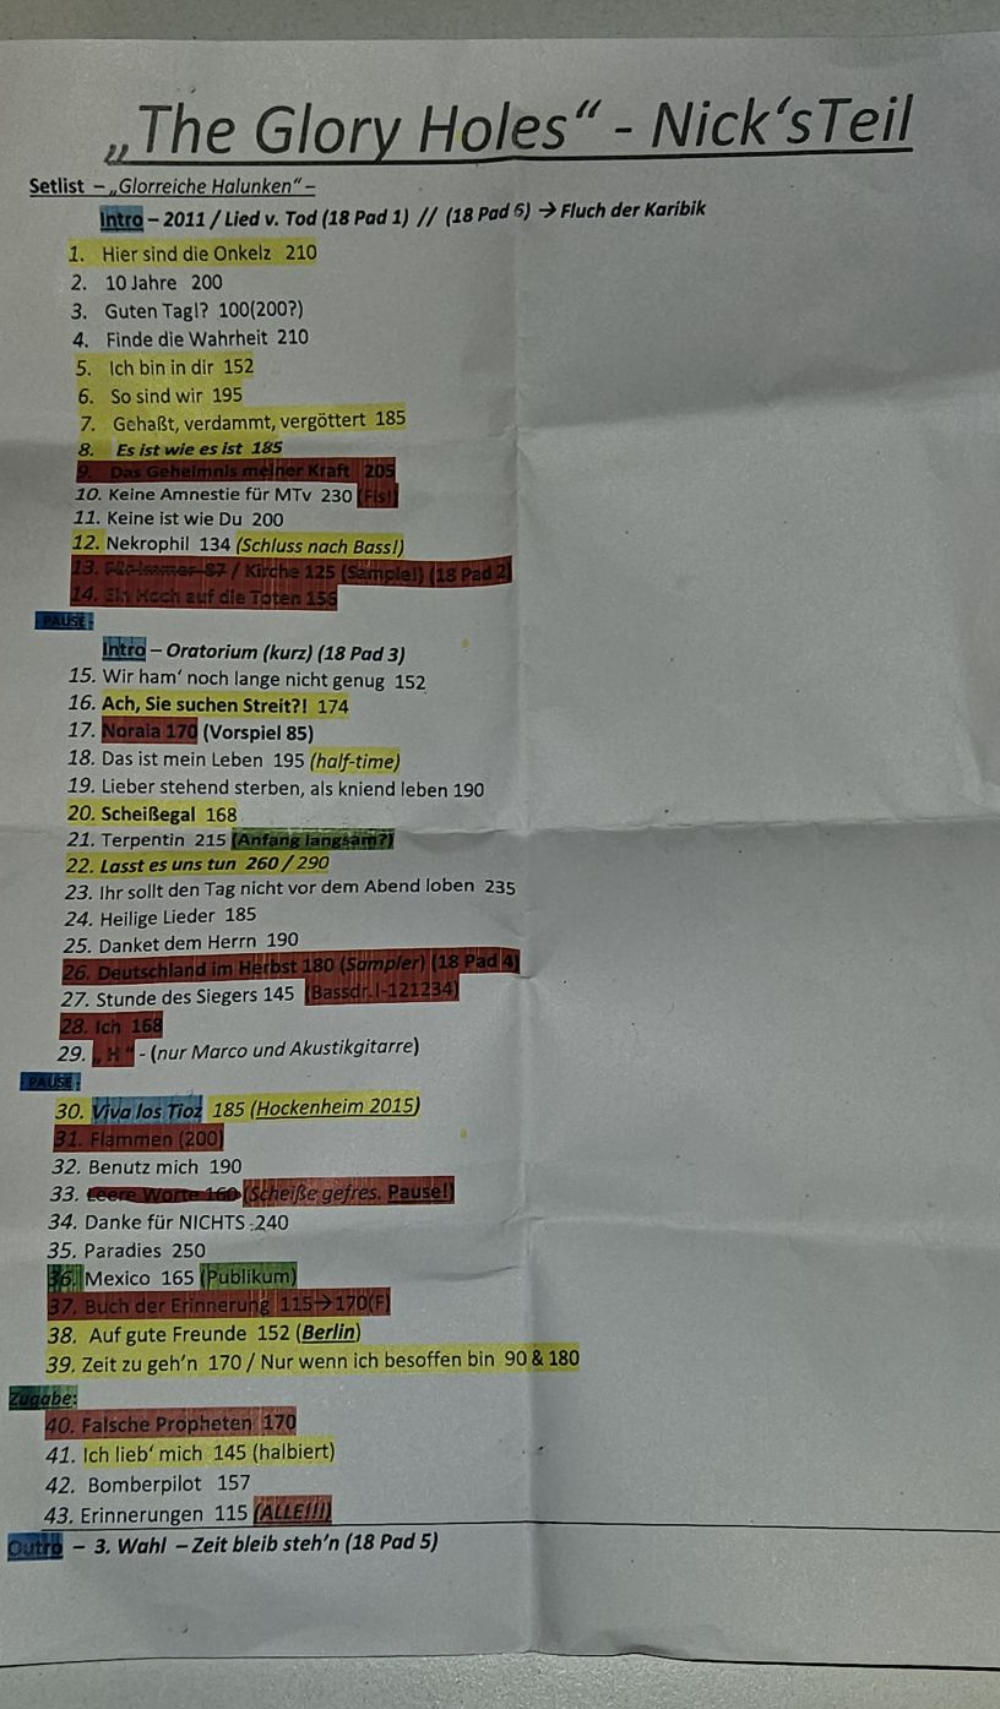 „The Glory Holes“ - Nick‘sTeil
Setlist – „Glorreiche Halunken“ –
Intro – 2011 / Lied v. Tod (18 Pad 1) // (18 Pad 6) → Fluch der Karibik
1. Hier sind die Onkelz 210
2. 10 Jahre 200
3. Guten Tag!? 100(200?)
4. Finde die Wahrheit 210
5. Ich bin in dir 152
6. So sind wir 195
7. Gehaßt, verdammt, vergöttert 185
8. Es ist wie es ist 185
9. Das Geheimnis meiner Kraft 205
10. Keine Amnestie für MTv 230 (Fis!)
11. Keine ist wie Du 200
12. Nekrophil 134 (Schluss nach Bass!)
13. Für immer 87 / Kirche 125 (Sample!) (18 Pad 2)
14. Ein Hoch auf die Toten 156
- PAUSE -
Intro – Oratorium (kurz) (18 Pad 3)
15. Wir ham‘ noch lange nicht genug 152
16. Ach, Sie suchen Streit?! 174
17. Noraia 170 (Vorspiel 85)
18. Das ist mein Leben 195 (half-time)
19. Lieber stehend sterben, als kniend leben 190
20. Scheißegal 168
21. Terpentin 215 (Anfang langsam?)
22. Lasst es uns tun 260 / 290
23. Ihr sollt den Tag nicht vor dem Abend loben 235
24. Heilige Lieder 185
25. Danket dem Herrn 190
26. Deutschland im Herbst 180 (Sampler) (18 Pad 4)
27. Stunde des Siegers 145 (Bassdr.!-121234)
28. Ich 168
29. „H“ - (nur Marco und Akustikgitarre)
- PAUSE -
30. Viva los Tioz 185 (Hockenheim 2015)
31. Flammen (200)
32. Benutz mich 190
33. Leere Worte 160 (Scheiße gefres. Pause!)
34. Danke für NICHTS 240
35. Paradies 250
36. Mexico 165 (Publikum)
37. Buch der Erinnerung 115→170(F)
38. Auf gute Freunde 152 (Berlin)
39. Zeit zu geh’n 170 / Nur wenn ich besoffen bin 90 & 180
Zugabe:
40. Falsche Propheten 170
41. Ich lieb‘ mich 145 (halbiert)
42. Bomberpilot 157
43. Erinnerungen 115 (ALLE!!!)
Outro – 3. Wahl – Zeit bleib steh’n (18 Pad 5)